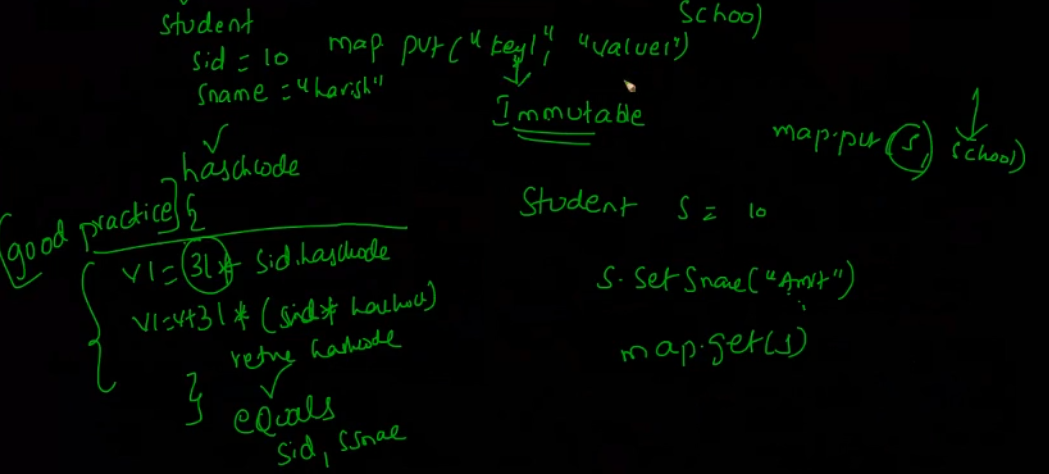 Student
sid = 10
sname = "harish"
map put("key1", "value1")
School
Immutable
map.put(s, School)
haschcode
[good practice] {
v1 = 31 * sid.hashcode
v1=v+31 * (sid* hashcode)
retrn hashcode
}
equals
sid, ssnae
Student s = 10
s.setSname("Amit")
map.get(s)